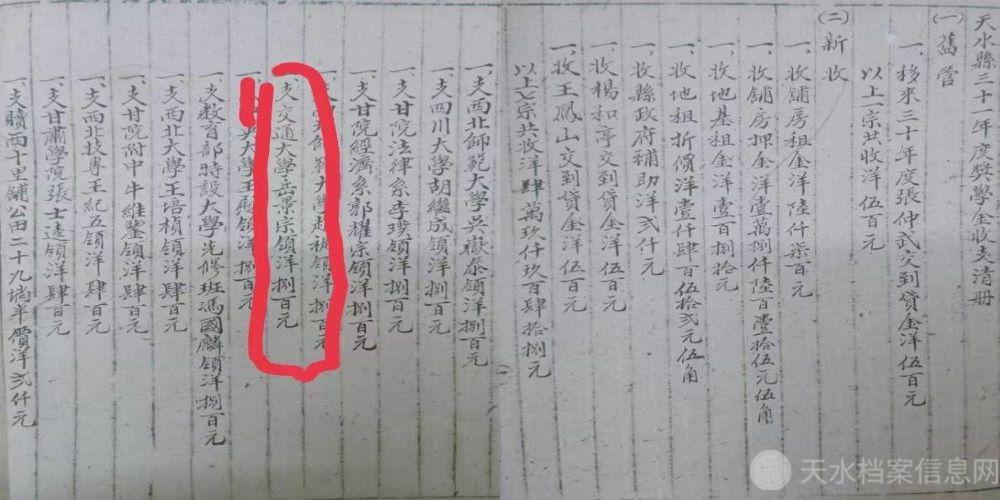 天水縣三十一年度獎學金收支清冊
(一)舊管
一、移來三十年度張仲武交到貸金洋伍百元
以上一宗共收洋伍百元
(二)新收
一、收鋪房租金洋陸仟柒百元
一、收鋪房押金洋壹萬捌仟陸百壹拾伍元伍角
一、收地基租金洋壹百捌拾元
一、收地租折價洋壹仟肆百伍拾弍元伍角
一、收縣政府補助洋弍仟元
一、收楊和亭交到貸金洋伍百元
一、收王鳳山交到貸金洋伍百元
以上七宗共收洋肆萬玖仟玖百肆拾捌元
一、支西北師範大學吳嶽泰領洋捌百元
一、支四川大學胡繼成領洋捌百元
一、支甘院法律系李璞領洋捌百元
一、支甘院經濟系郭耀宗領洋捌百元
範大學趙 領洋捌百元
一、支交通大學岳景宗領洋捌百元
大學王 領洋捌百元
一、支教育部特設大學先修班馮國麟領洋捌百元
一、支西北大學王培楨領洋肆百元
一、支甘院附中牛維鑒領洋肆百元
一、支西北技專王紀五領洋肆百元
一、支甘肅學院張士達領洋肆百元
一、支贖西十里鋪公田二十九垧半價洋弍仟元
天水档案信息网